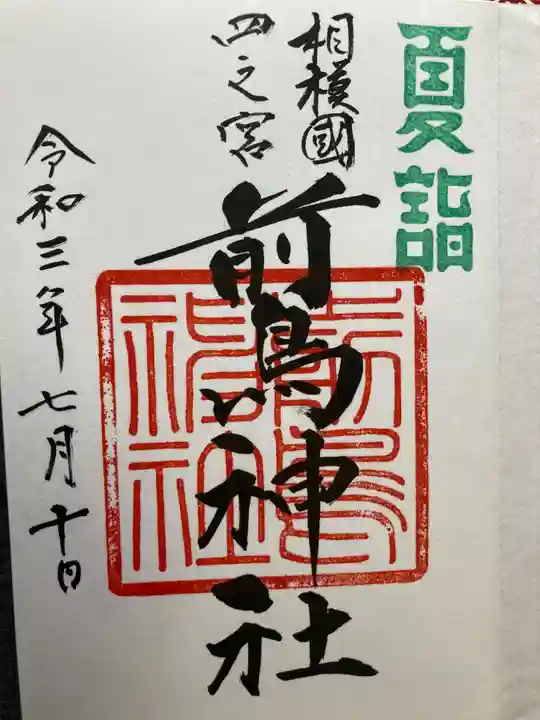 夏詣
相模國
四之宮
前鳥神社
前鳥
神社
令和三年七月十日